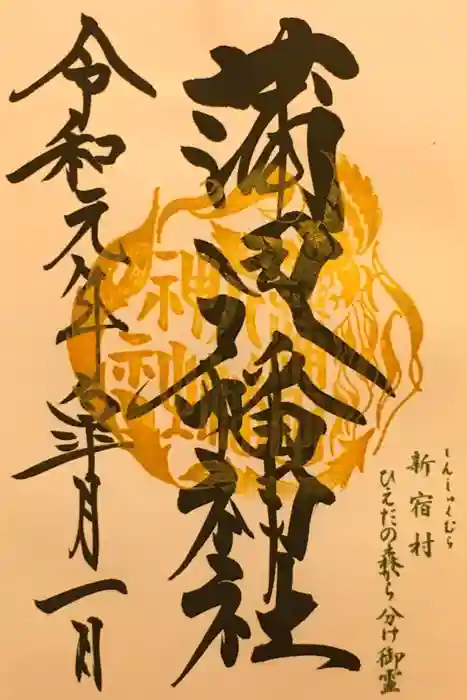 しんしゅくむら
新宿村
ひえだの森から分け御霊
蒲田八幡神社
神社
令和元年皐月一日